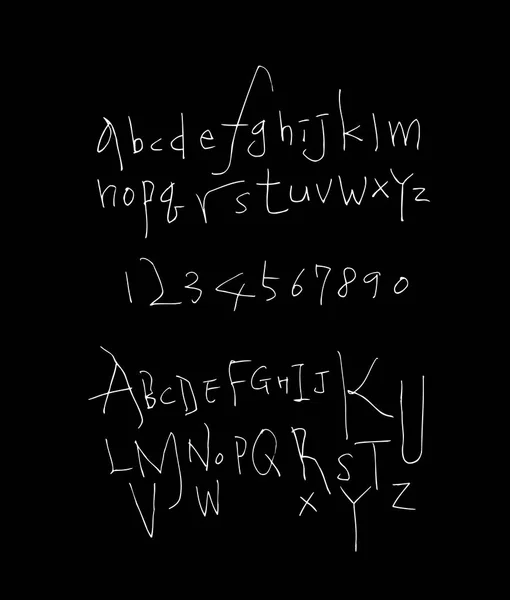 abcdefghijklm
nopqrstuvwxyz
1234567890
ABCDEFGHIJKU
LMNOPQRST
VWXYZ